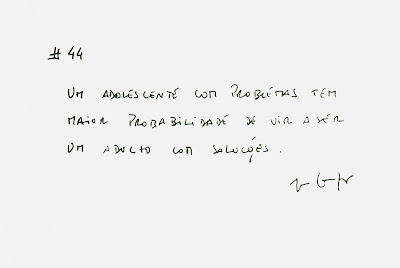 # 44
UM ADOLESCENTE COM PROBLEMAS TEM
MAIOR PROBABILIDADE DE VIR A SER
UM ADULTO COM SOLUÇÕES.